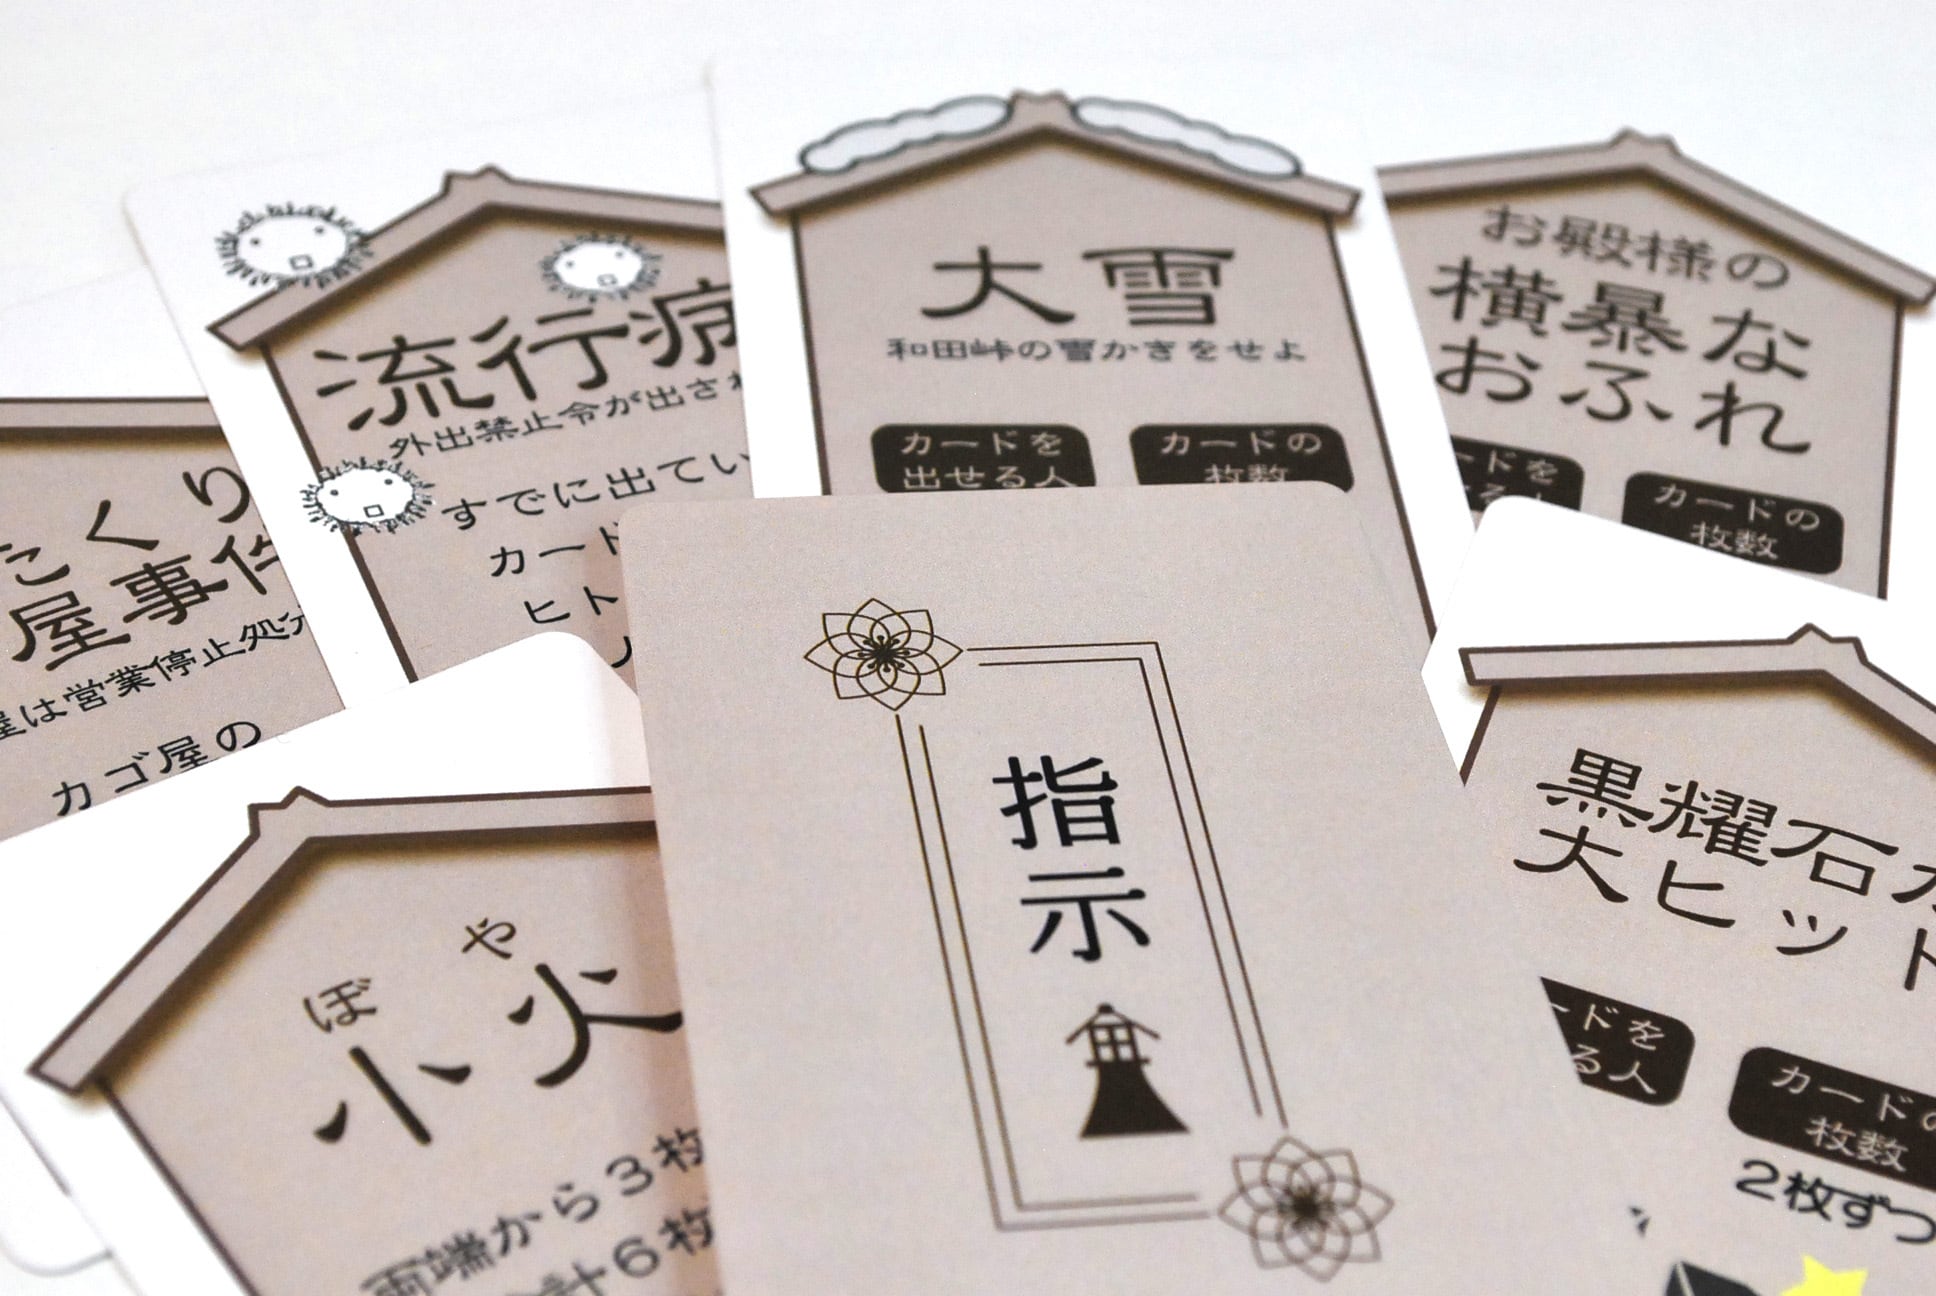 たくり
屋事件
屋は営業停止処
カゴ屋の
流行病
外出禁止令が出され
すでに出てい
カード
ヒト
大雪
和田峠の雪かきをせよ
カードを
出せる人
カードの
枚数
お殿様の
横暴な
おふれ
ードを
る人
カードの
枚数
ぼや
小火
両端から3枚
計6枚
指示
黒耀石が
大ヒット
ードを
る人
カードの
枚数
2枚ずつ